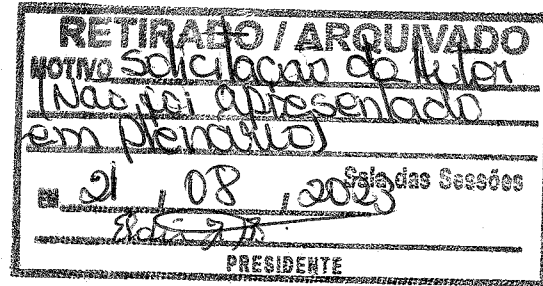 RETIRADO / ARQUIVADO
MOTIVO Solicitação do Autor
(Não foi apresentado
em plenário)
21 / 08 / 2023 Sala das Sessões
PRESIDENTE